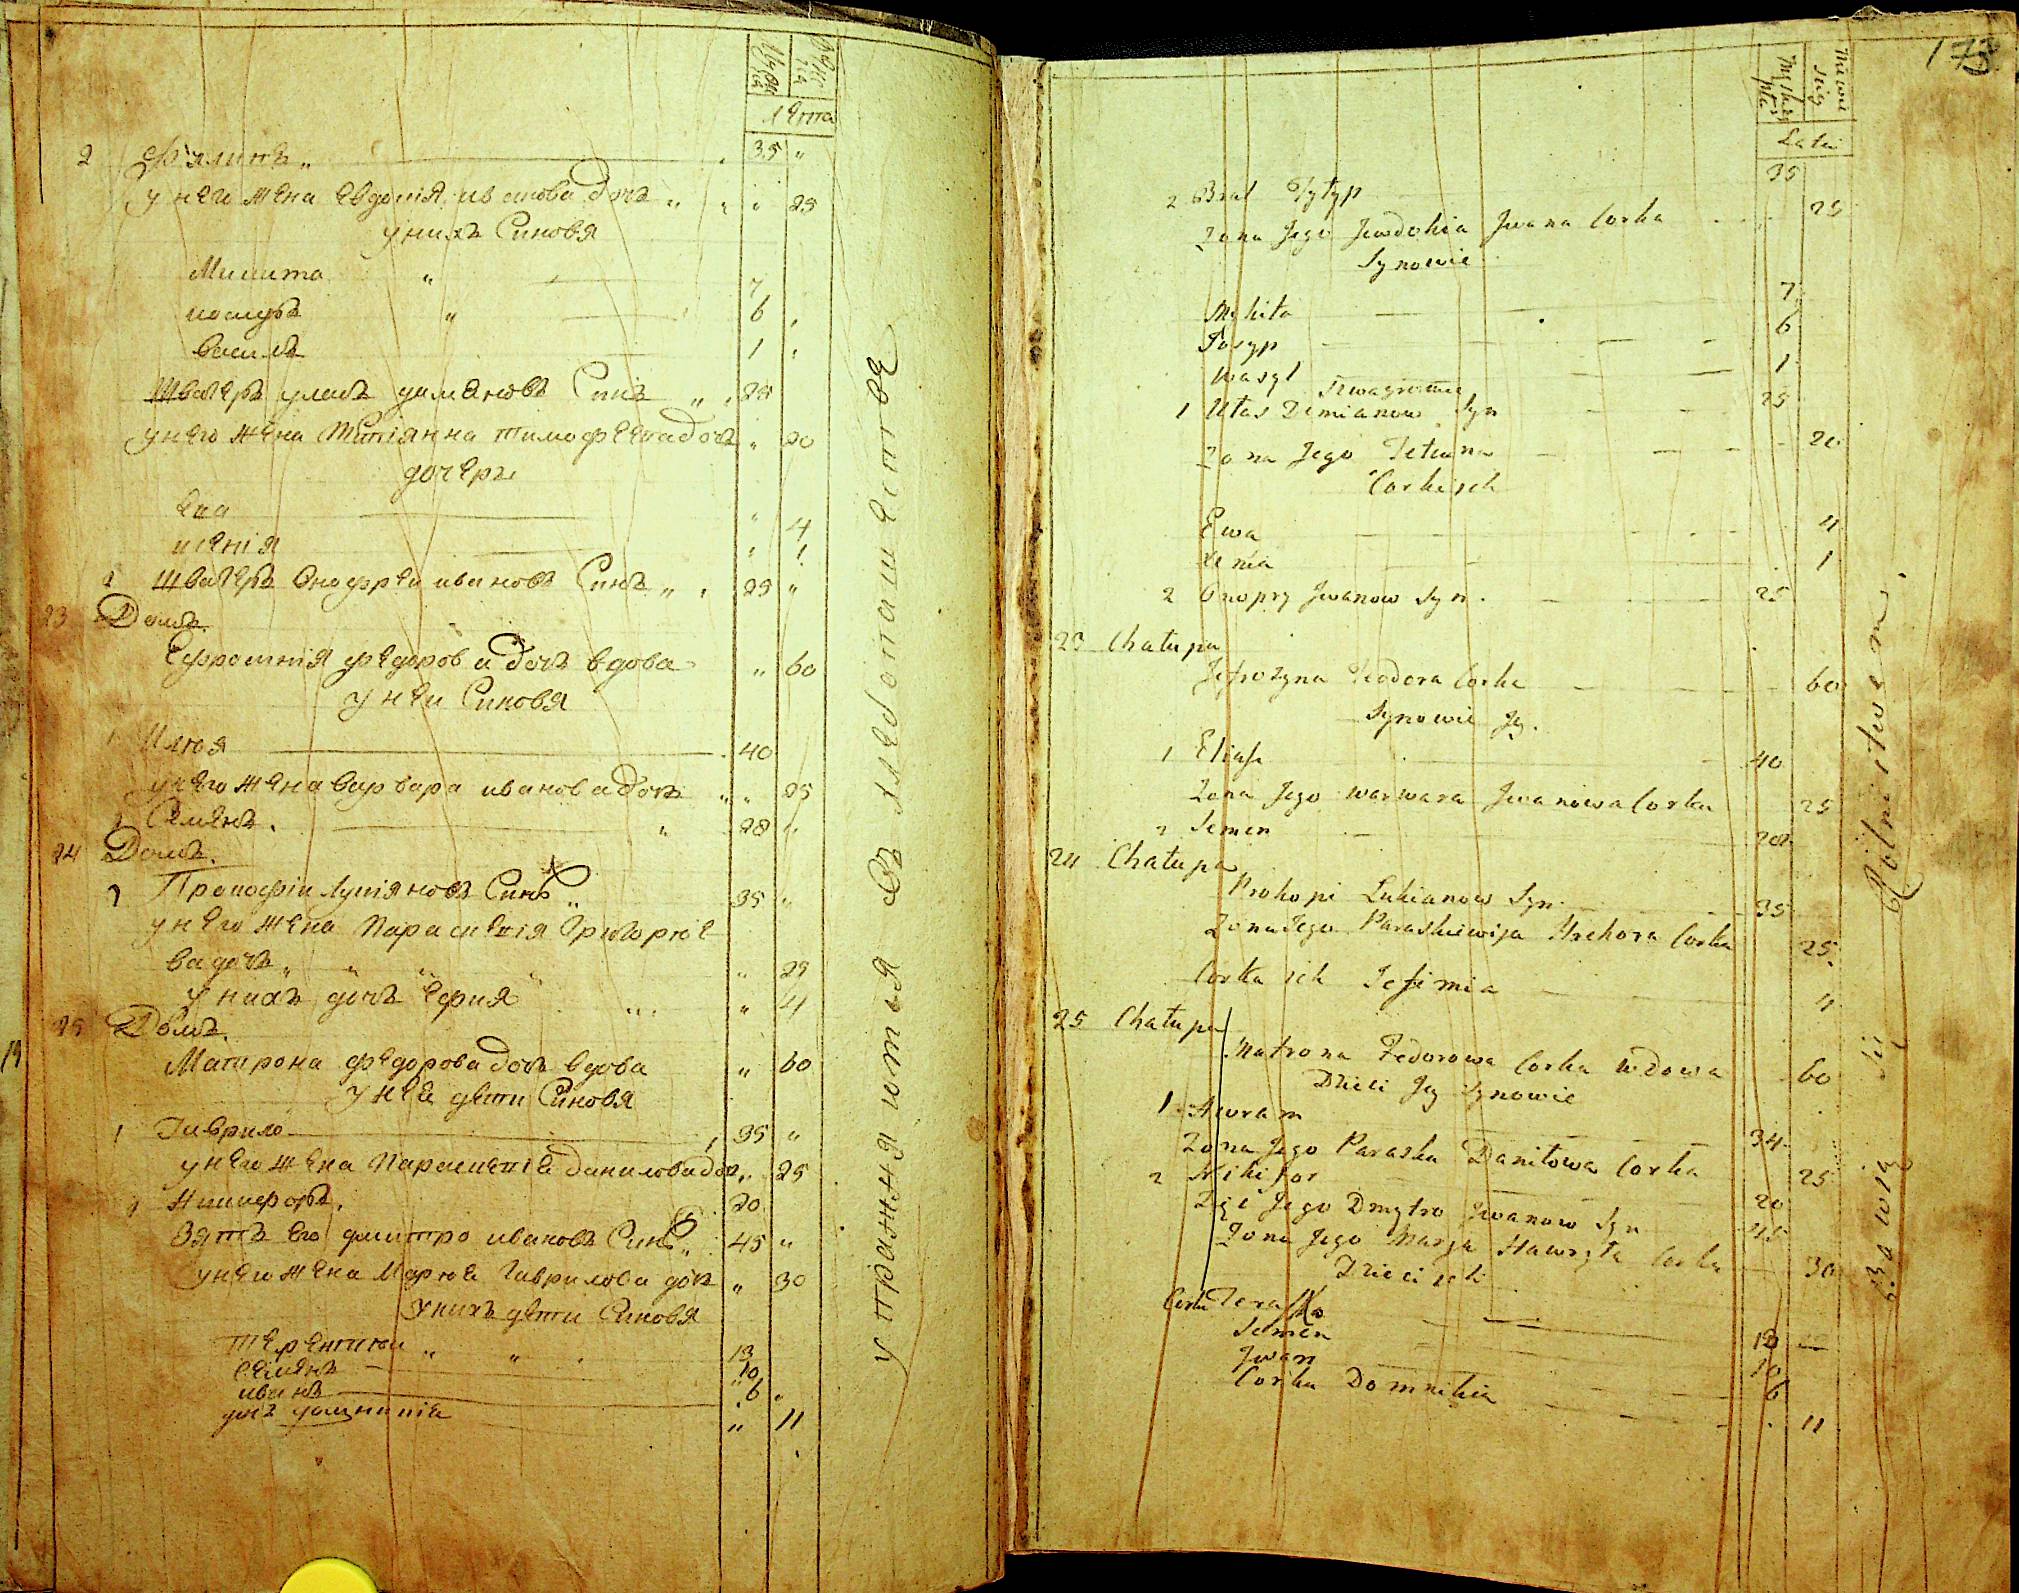 лѣта
2 Филипъ „ 35 „
у него жена Евдокия иванова дочь „ „ 25
у нихъ Синовя
Микита „ 7
иосипъ „ 6
василь 1
Швагеръ уласъ дамяновъ Синъ „ „ 25
у него жена Татіянна тимофеева дочь „ 20
дочери
Ева „ 4
ксенія „ 1
2 Швагеръ Онофреи ивановъ Синъ „ 25 „
23 Домъ.
Ефросинія федорова дочь вдова „ 60
у неи Синовя
1 Илюя 40
у него жена варвара иванова дочь „ „ 25
2 Семенъ. „ 28 „
24 Домъ.
1 Прокофіи лукіяновъ Синъ „ 35 „
у него жена Параскевія Григорие
ва дочь „ „ „ „ 25
у нихъ дочь Ефимия „ 4
25 Домъ.
Матрона федорова дочь вдова „ 60
у нее дети Синовя
1 Гаврило 35 „
у него жена Параскевіе данилова дочь „ 25
2 Никифоръ. 20
Зять Его дмитро ивановъ Синъ „ 45 „
у него жена Марие гаврилова дочь „ 30
у нихъ дети Синовя
терентии „ „ 13
Семенъ 10
иванъ 6 „
дочь домникія „ 11
упражняются въ хлебопашестве
173
Lata
2 Brat 35
Zona Jego Jewdokia Jwana Corka 25
Synowie
Mykita 7
Josyp 6
Wasyl 1
Szwagrowie
1 Ułas Demianow Syn 25
Zona Jego Tetiana 20
Corki ich
Ewa 4
Xenia 1
2 Onopry Jwanow Syn. 25
23 Chałupa
Jefrozyna Teodora Corka 60
Synowie Jey.
1 Eliasz 40
Zona Jego warwara Jwanowa Corka 25
2 Semen 28
24 Chałupa
Prokopi Lukianow Syn 35
Zona Jego Paraskiewija Hrehora Corka 25
Corka ich Jefimia 4
25 Chałupa
Matrona Fedorowa Corka Wdowa 60
Dzieci Jey Synowie
1 Awram 34
Zona Jego Paraska Daniłowa Corka 25
2 Nikifor 20
Zięć Jego Dmytro Jwanow Syn 45
Zona Jego Marya Hawryła Corka 30
Dzieci ich
13
Semen 10
Jwan 6
Corka Domnikia 11
Bawią się Rolnictwem.